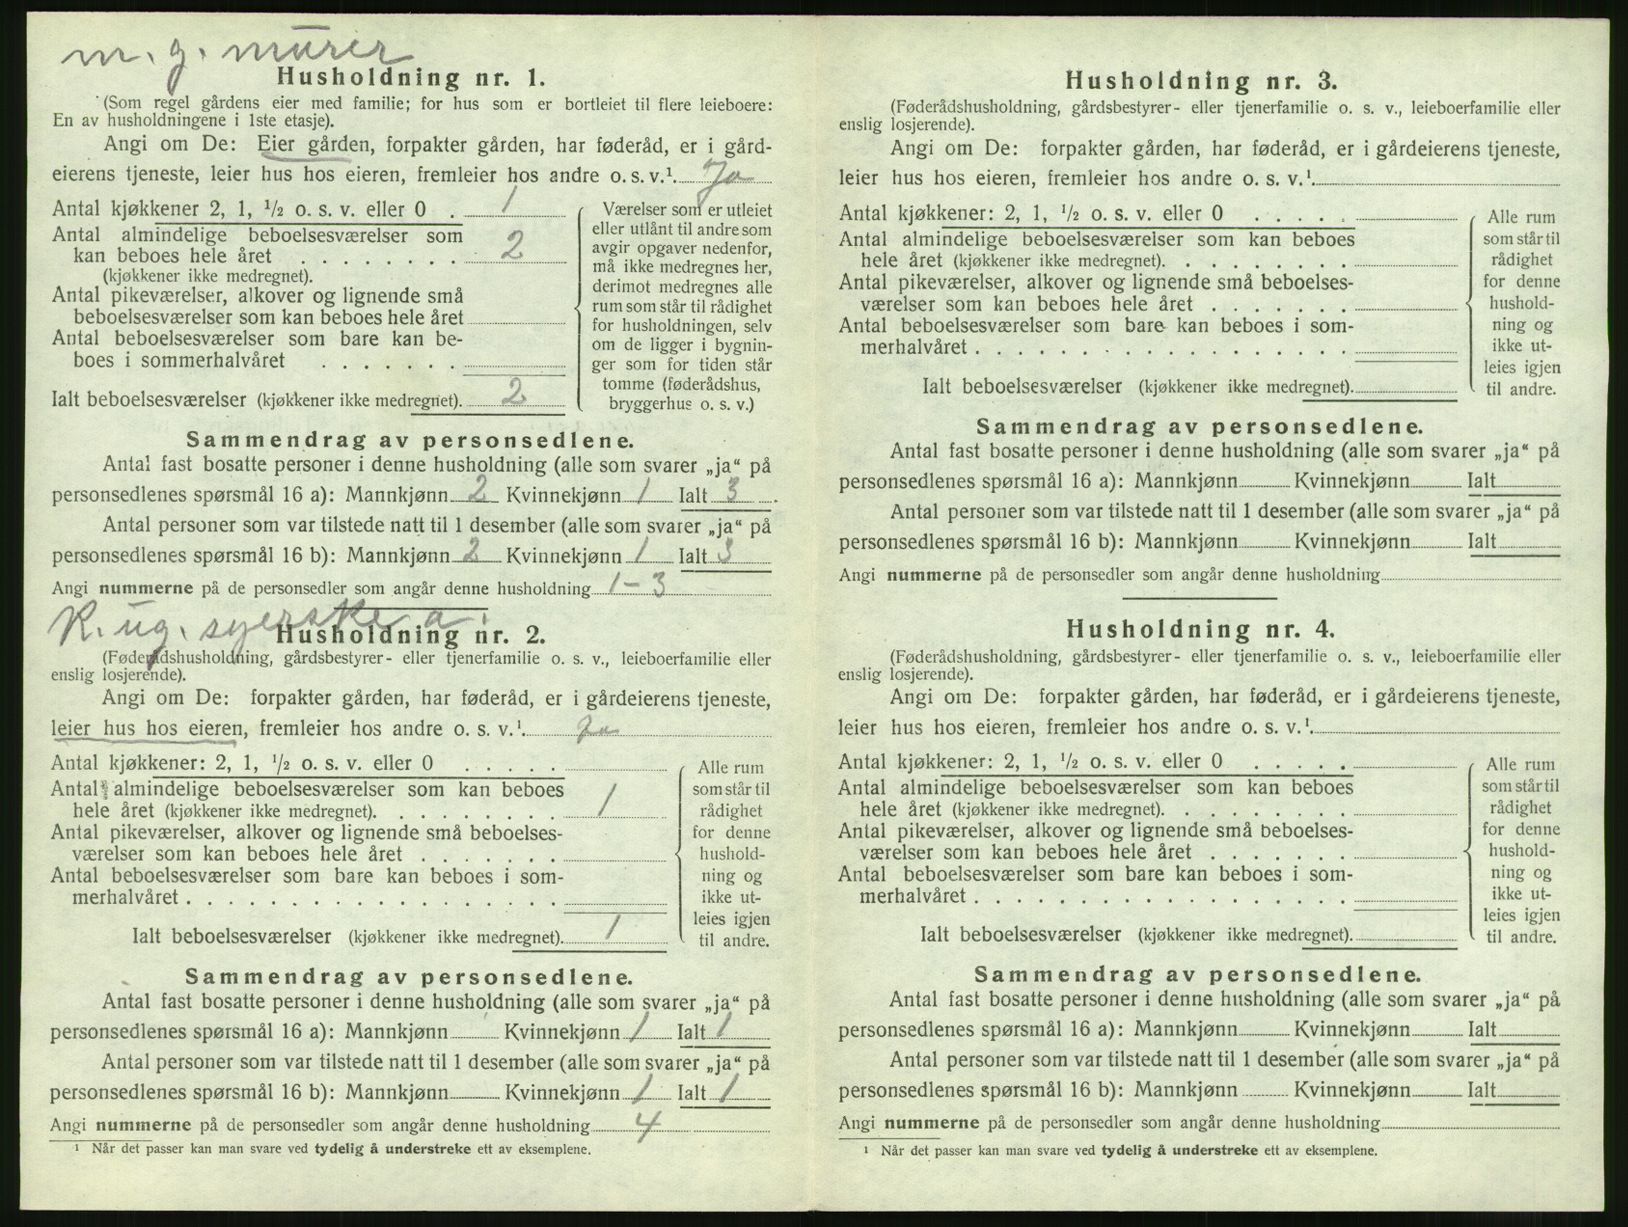 m. g. murer
Husholdning nr. 1.
(Som regel gårdens eier med familie; for hus som er bortleiet til flere leieboere:
En av husholdningene i 1ste etasje).
Angi om De: Eier gården, forpakter gården, har føderåd, er i gård-
eierens tjeneste, leier hus hos eieren, fremleier hos andre o. s. v.¹. Ja
Antal kjøkkener 2, 1, ½ o. s. v. eller 0 . 1
Antal almindelige beboelsesværelser som
kan beboes hele året . . . . . . . . 2
(kjøkkener ikke medregnet).
Antal pikeværelser, alkover og lignende små
beboelsesværelser som kan beboes hele året
Antal beboelsesværelser som bare kan be-
boes i sommerhalvåret . . . . . . .
Ialt beboelsesværelser (kjøkkener ikke medregnet). 2
Værelser som er utleiet
eller utlånt til andre som
avgir opgaver nedenfor,
må ikke medregnes her,
derimot medregnes alle
rum som står til rådighet
for husholdningen, selv
om de ligger i bygnin-
ger som for tiden står
tomme (føderådshus,
bryggerhus o. s. v.)
Sammendrag av personsedlene.
Antal fast bosatte personer i denne husholdning (alle som svarer „ja“ på
personsedlenes spørsmål 16 a): Mannkjønn 2 Kvinnekjønn 1 Ialt 3
Antal personer som var tilstede natt til 1 desember (alle som svarer „ja“ på
personsedlenes spørsmål 16 b): Mannkjønn 2 Kvinnekjønn 1 Ialt 3
Angi nummerne på de personsedler som angår denne husholdning 1-3
K. ug. syerske a.
Husholdning nr. 2.
(Føderådshusholdning, gårdsbestyrer- eller tjenerfamilie o. s. v., leieboerfamilie eller
enslig losjerende).
Angi om De: forpakter gården, har føderåd, er i gårdeierens tjeneste,
leier hus hos eieren, fremleier hos andre o. s. v.¹. Ja
Antal kjøkkener: 2, 1, ½ o. s. v. eller 0 . . . . .
Antal almindelige beboelsesværelser som kan beboes
hele året (kjøkkener ikke medregnet). . . . . . . . 1
Antal pikeværelser, alkover og lignende små beboelses-
værelser som kan beboes hele året . . . . . . .
Antal beboelsesværelser som bare kan beboes i som-
merhalvåret . . . . . . . . . . . . . . . . . .
Ialt beboelsesværelser (kjøkkener ikke medregnet). 1
Alle rum
som står til
rådighet
for denne
hushold-
ning og
ikke ut-
leies igjen
til andre.
Sammendrag av personsedlene.
Antal fast bosatte personer i denne husholdning (alle som svarer „ja“ på
personsedlenes spørsmål 16 a): Mannkjønn Kvinnekjønn 1 Ialt 1
Antal personer som var tilstede natt til 1 desember (alle som svarer „ja“ på
personsedlenes spørsmål 16 b): Mannkjønn Kvinnekjønn 1 Ialt 1
Angi nummerne på de personsedler som angår denne husholdning 4
¹ Når det passer kan man svare ved tydelig å understreke ett av eksemplene.
Husholdning nr. 3.
(Føderådshusholdning, gårdsbestyrer- eller tjenerfamilie o. s. v., leieboerfamilie eller
enslig losjerende).
Angi om De: forpakter gården, har føderåd, er i gårdeierens tjeneste,
leier hus hos eieren, fremleier hos andre o. s. v.¹.
Antal kjøkkener: 2, 1, ½ o. s. v. eller 0 . . . . .
Antal almindelige beboelsesværelser som kan beboes
hele året (kjøkkener ikke medregnet). . . . . . . .
Antal pikeværelser, alkover og lignende små beboelses-
værelser som kan beboes hele året . . . . . . .
Antal beboelsesværelser som bare kan beboes i som-
merhalvåret . . . . . . . . . . . . . . . . . .
Ialt beboelsesværelser (kjøkkener ikke medregnet).
Alle rum
som står til
rådighet
for denne
hushold-
ning og
ikke ut-
leies igjen
til andre.
Sammendrag av personsedlene.
Antal fast bosatte personer i denne husholdning (alle som svarer „ja“ på
personsedlenes spørsmål 16 a): Mannkjønn Kvinnekjønn Ialt
Antal personer som var tilstede natt til 1 desember (alle som svarer „ja“ på
personsedlenes spørsmål 16 b): Mannkjønn Kvinnekjønn Ialt
Angi nummerne på de personsedler som angår denne husholdning
Husholdning nr. 4.
(Føderådshusholdning, gårdsbestyrer- eller tjenerfamilie o. s. v., leieboerfamilie eller
enslig losjerende).
Angi om De: forpakter gården, har føderåd, er i gårdeierens tjeneste,
leier hus hos eieren, fremleier hos andre o. s. v.¹.
Antal kjøkkener: 2, 1, ½ o. s. v. eller 0 . . . . .
Antal almindelige beboelsesværelser som kan beboes
hele året (kjøkkener ikke medregnet). . . . . . . .
Antal pikeværelser, alkover og lignende små beboelses-
værelser som kan beboes hele året . . . . . . .
Antal beboelsesværelser som bare kan beboes i som-
merhalvåret . . . . . . . . . . . . . . . . . .
Ialt beboelsesværelser (kjøkkener ikke medregnet).
Alle rum
som står til
rådighet
for denne
hushold-
ning og
ikke ut-
leies igjen
til andre.
Sammendrag av personsedlene.
Antal fast bosatte personer i denne husholdning (alle som svarer „ja“ på
personsedlenes spørsmål 16 a): Mannkjønn Kvinnekjønn Ialt
Antal personer som var tilstede natt til 1 desember (alle som svarer „ja“ på
personsedlenes spørsmål 16 b): Mannkjønn Kvinnekjønn Ialt
Angi nummerne på de personsedler som angår denne husholdning
¹ Når det passer kan man svare ved tydelig å understreke ett av eksemplene.